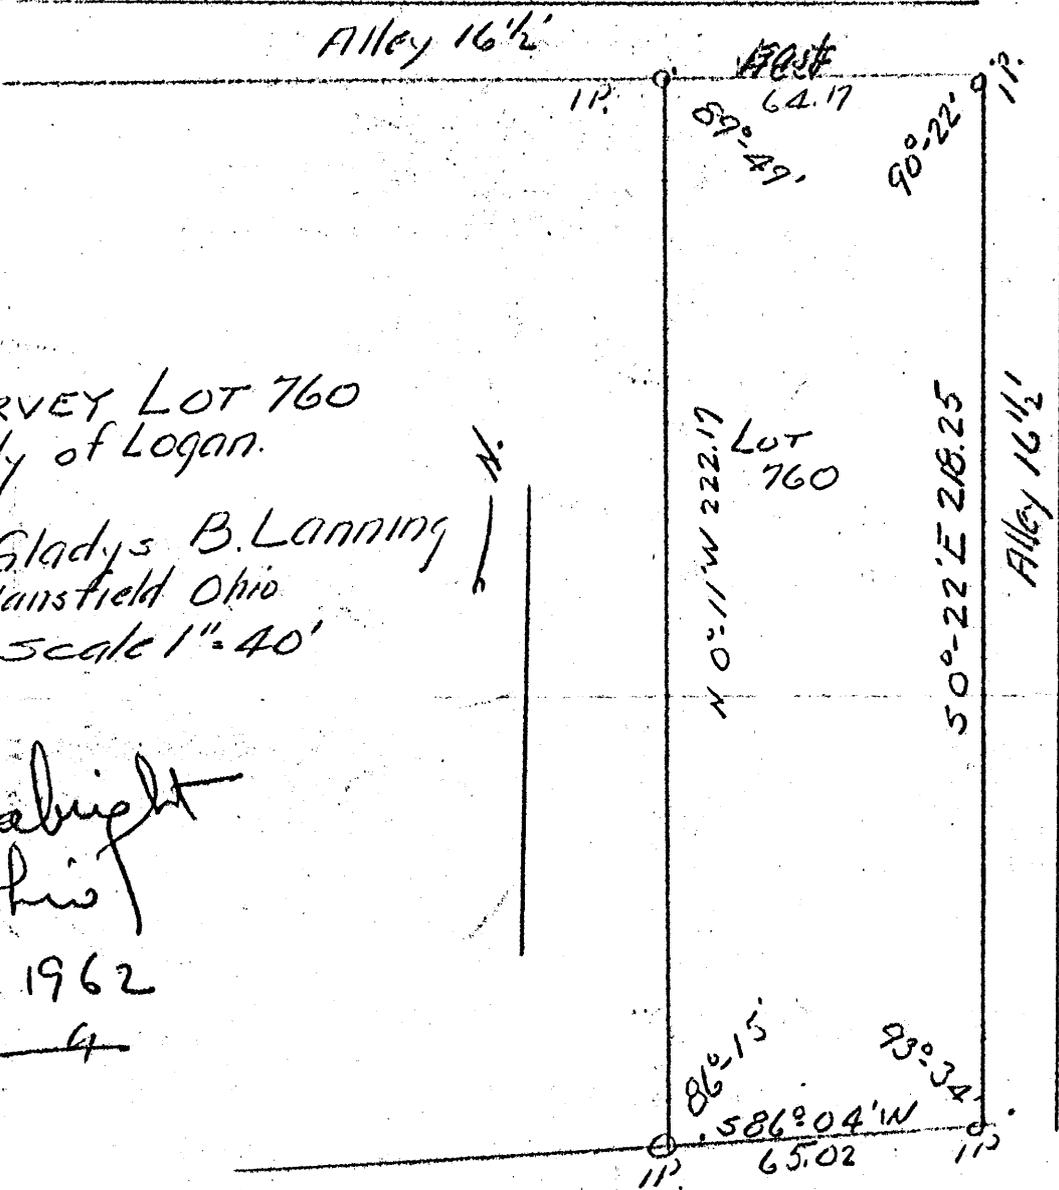 Alley 16½'
East
I.P.
64.17
I.P.
89°-49'
90°-22'
RVEY LOT 760
y of Logan.
N.
Gladys B. Lanning
ansfield Ohio
scale 1"=40'
LOT
760
N 0°-11' W 222.17
S 0°-22' E 218.25
Alley 16½'
abright
hio
1962
86°-15'
93°-34'
S 86°-04' W
65.02
I.P.
I.P.